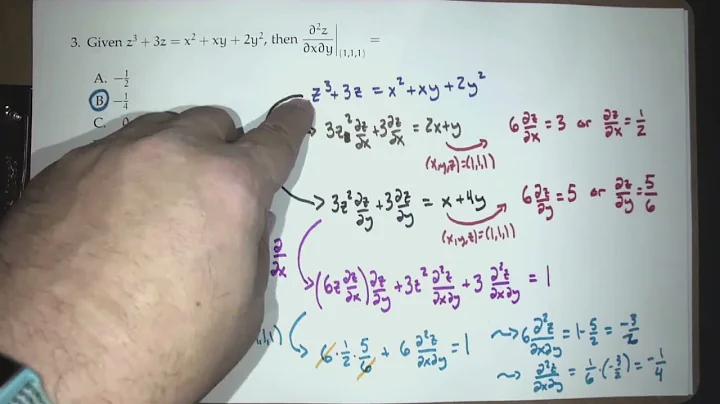 3. Given z³ + 3z = x² + xy + 2y², then ∂²z/∂x∂y |(1,1,1) =
A. −1/2
B. −1/4
C. 0
z³ + 3z = x² + xy + 2y²
3z² ∂z/∂x + 3 ∂z/∂x = 2x + y
(x,y,z)=(1,1,1)
6 ∂z/∂x = 3 or ∂z/∂x = 1/2
3z² ∂z/∂y + 3 ∂z/∂y = x + 4y
(x,y,z)=(1,1,1)
6 ∂z/∂y = 5 or ∂z/∂y = 5/6
∂/∂x
(6z ∂z/∂x) ∂z/∂y + 3z² ∂²z/∂x∂y + 3 ∂²z/∂x∂y = 1
1,1)
6 · 1/2 · 5/6 + 6 ∂²z/∂x∂y = 1
6 ∂²z/∂x∂y = 1 - 5/2 = -3/2
∂²z/∂x∂y = 1/6 · (-3/2) = -1/4